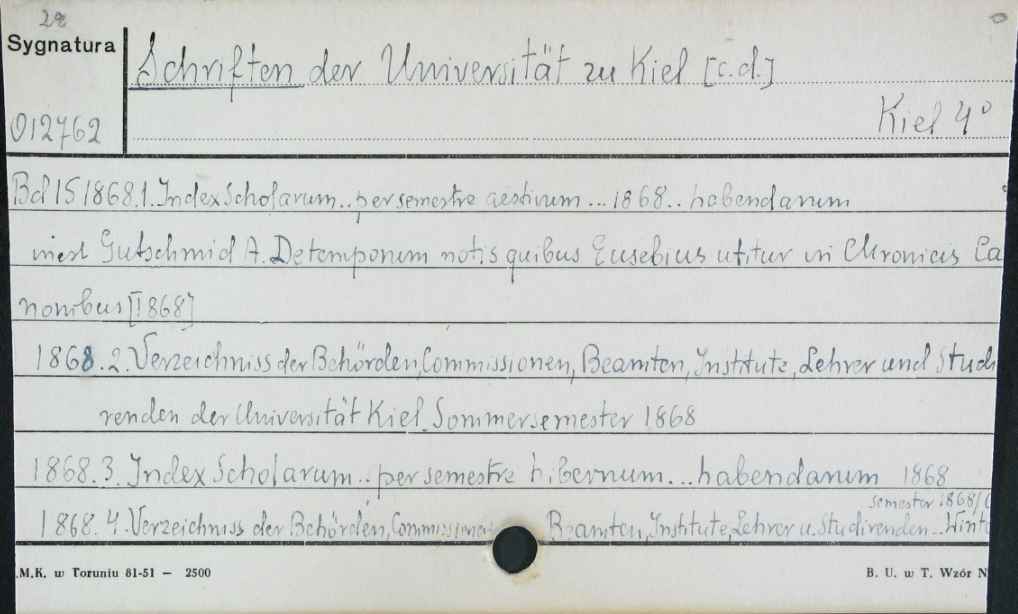 2e
Sygnatura
Schriften der Universität zu Kiel [c.d.]
012762 Kiel 4°
Bd 15 1868.1. Index Scholarum.. per semestre aestivum ... 1868.. habendarum
inest Gutschmid A. De temporum notis quibus Eusebius utitur in Chronicis Ca
nonibus [I 1868]
1868.2. Verzeichniss der Behörden, Commissionen, Beamten, Institute, Lehrer und Studi
renden der Universität Kiel. Sommersemester 1868
1868.3. Index Scholarum.. per semestre hibernum... habendarum 1868
semester 1868/
1868.4. Verzeichniss der Behörden, Beamten, Institute, Lehrer u. Studirenden.. Wint
.M.K. w Toruniu 81-51 — 2500
B. U. w T. Wzór N